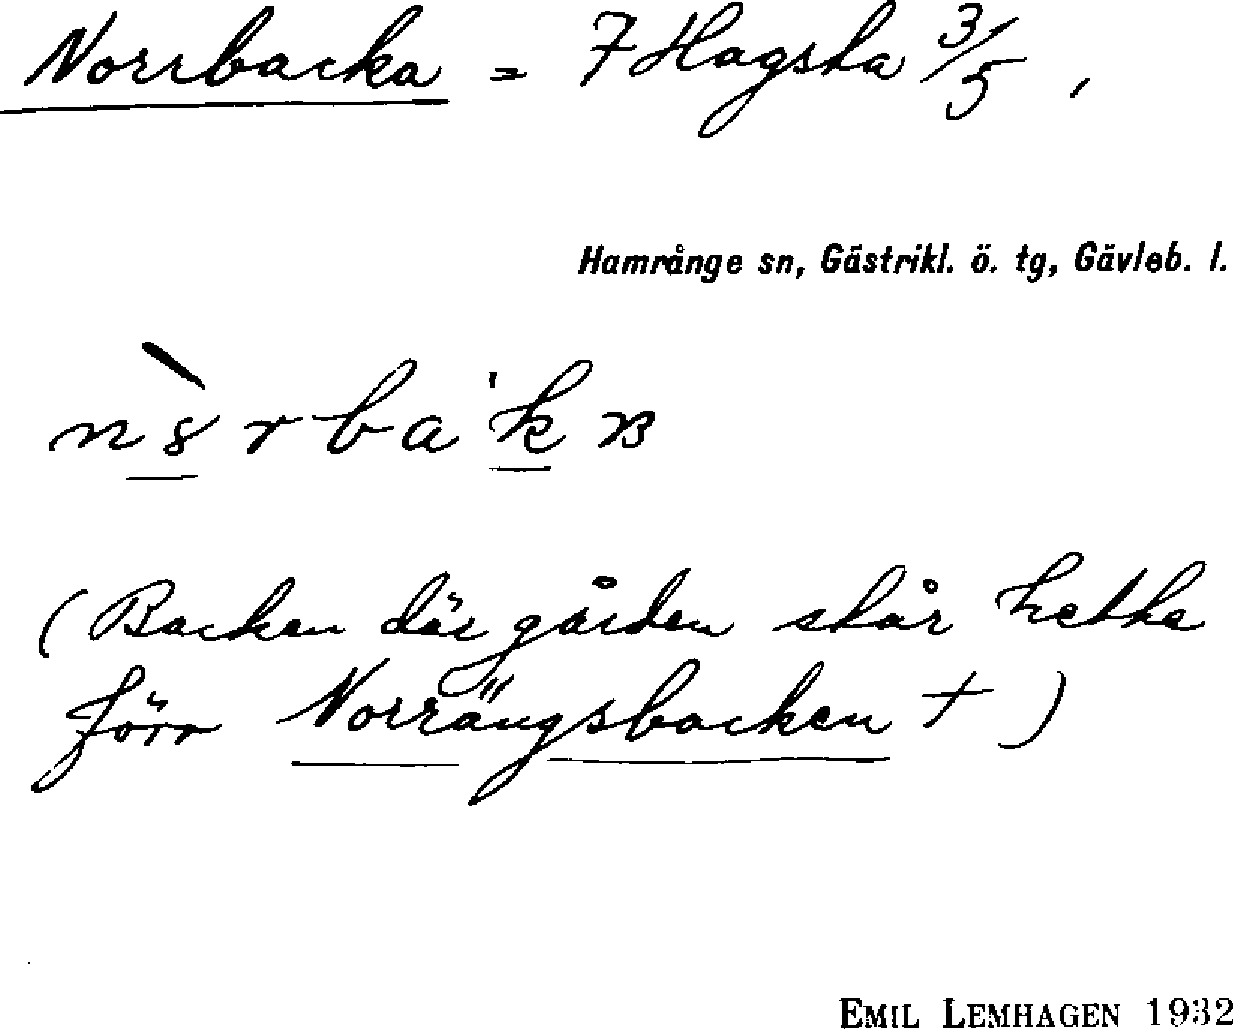 Norrbacka = 7 Hagsta 3/5,
Hamrånge sn, Gästrikl. ö. tg, Gävleb. l.
(Backen där gården står hette
förr Norrängsbacken +)
EMIL LEMHAGEN 1932